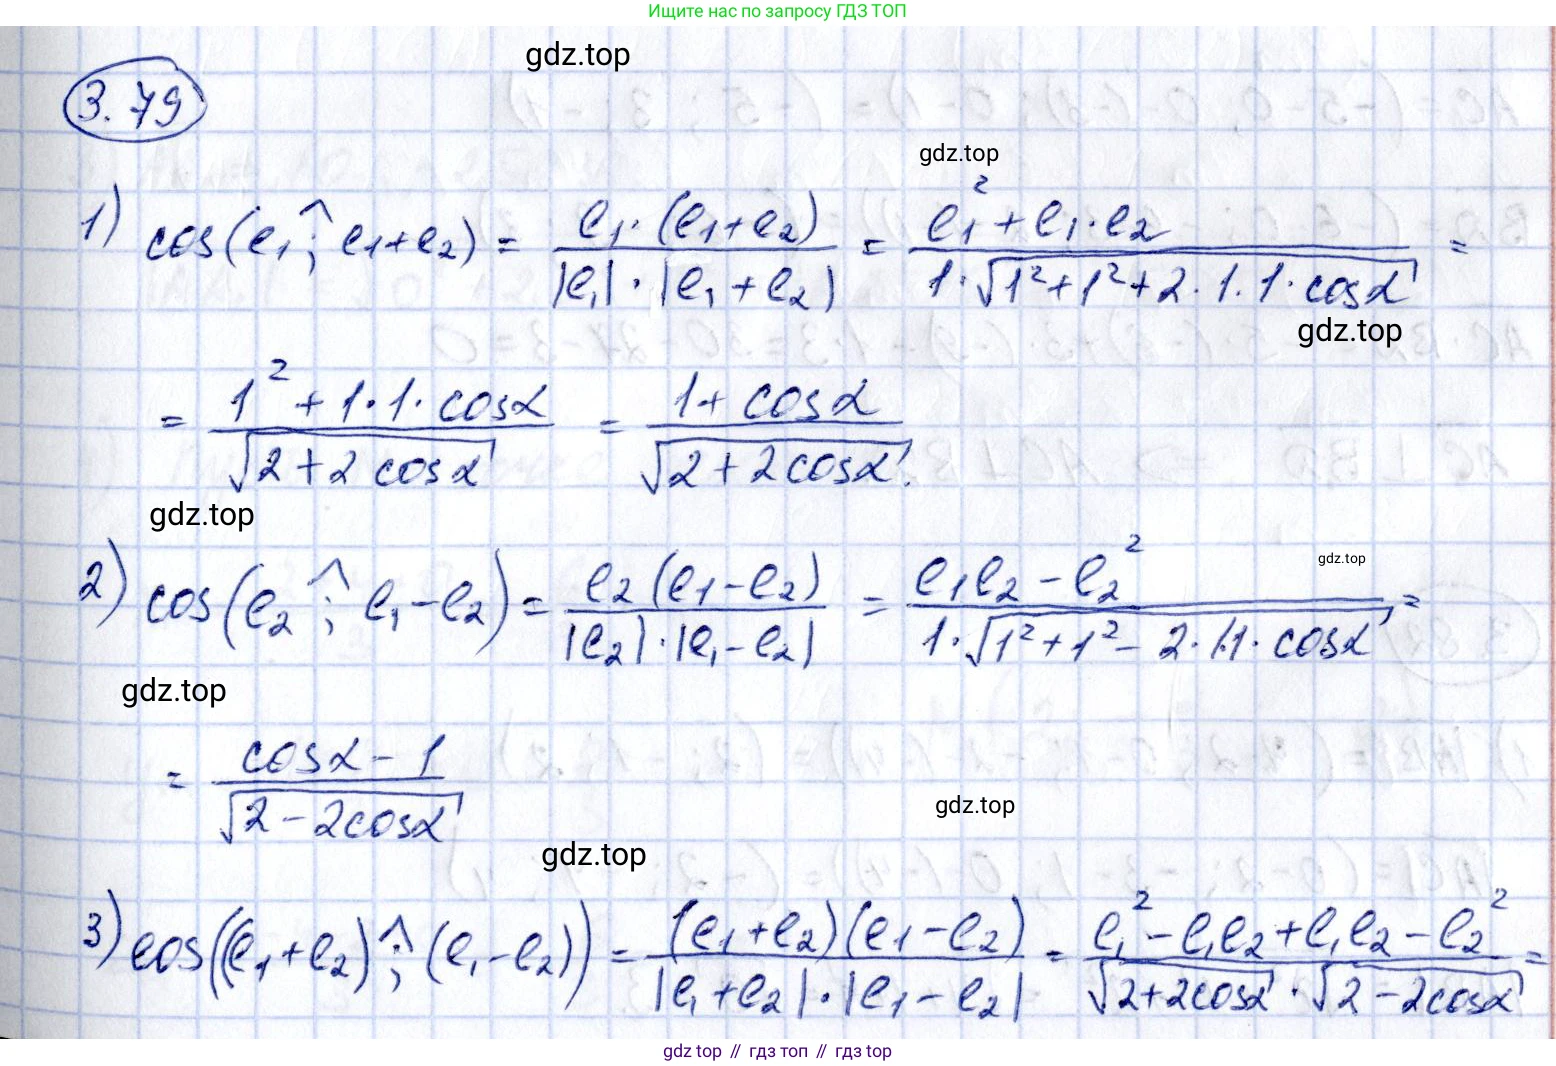 Ищите нас по запросу ГДЗ ТОП
gdz.top
3.79
gdz.top
1) cos(e₁ ^; e₁+e₂) = e₁·(e₁+e₂) / |e₁|·|e₁+e₂| = e₁²+e₁·e₂ / 1·√(1²+1²+2·1·1·cosα) =
gdz.top
= 1²+1·1·cosα / √(2+2cosα) = 1+cosα / √(2+2cosα).
gdz.top
2) cos(e₂ ^; e₁-e₂) = e₂(e₁-e₂) / |e₂|·|e₁-e₂| = e₁e₂-e₂² / 1·√(1²+1²-2·1·1·cosα) =
gdz.top
gdz.top
= cosα-1 / √(2-2cosα)
gdz.top
gdz.top
3) cos((e₁+e₂) ^; (e₁-e₂)) = (e₁+e₂)(e₁-e₂) / |e₁+e₂|·|e₁-e₂| = e₁²-e₁e₂+e₁e₂-e₂² / √(2+2cosα)·√(2-2cosα) =
gdz top // гдз топ // гдз top